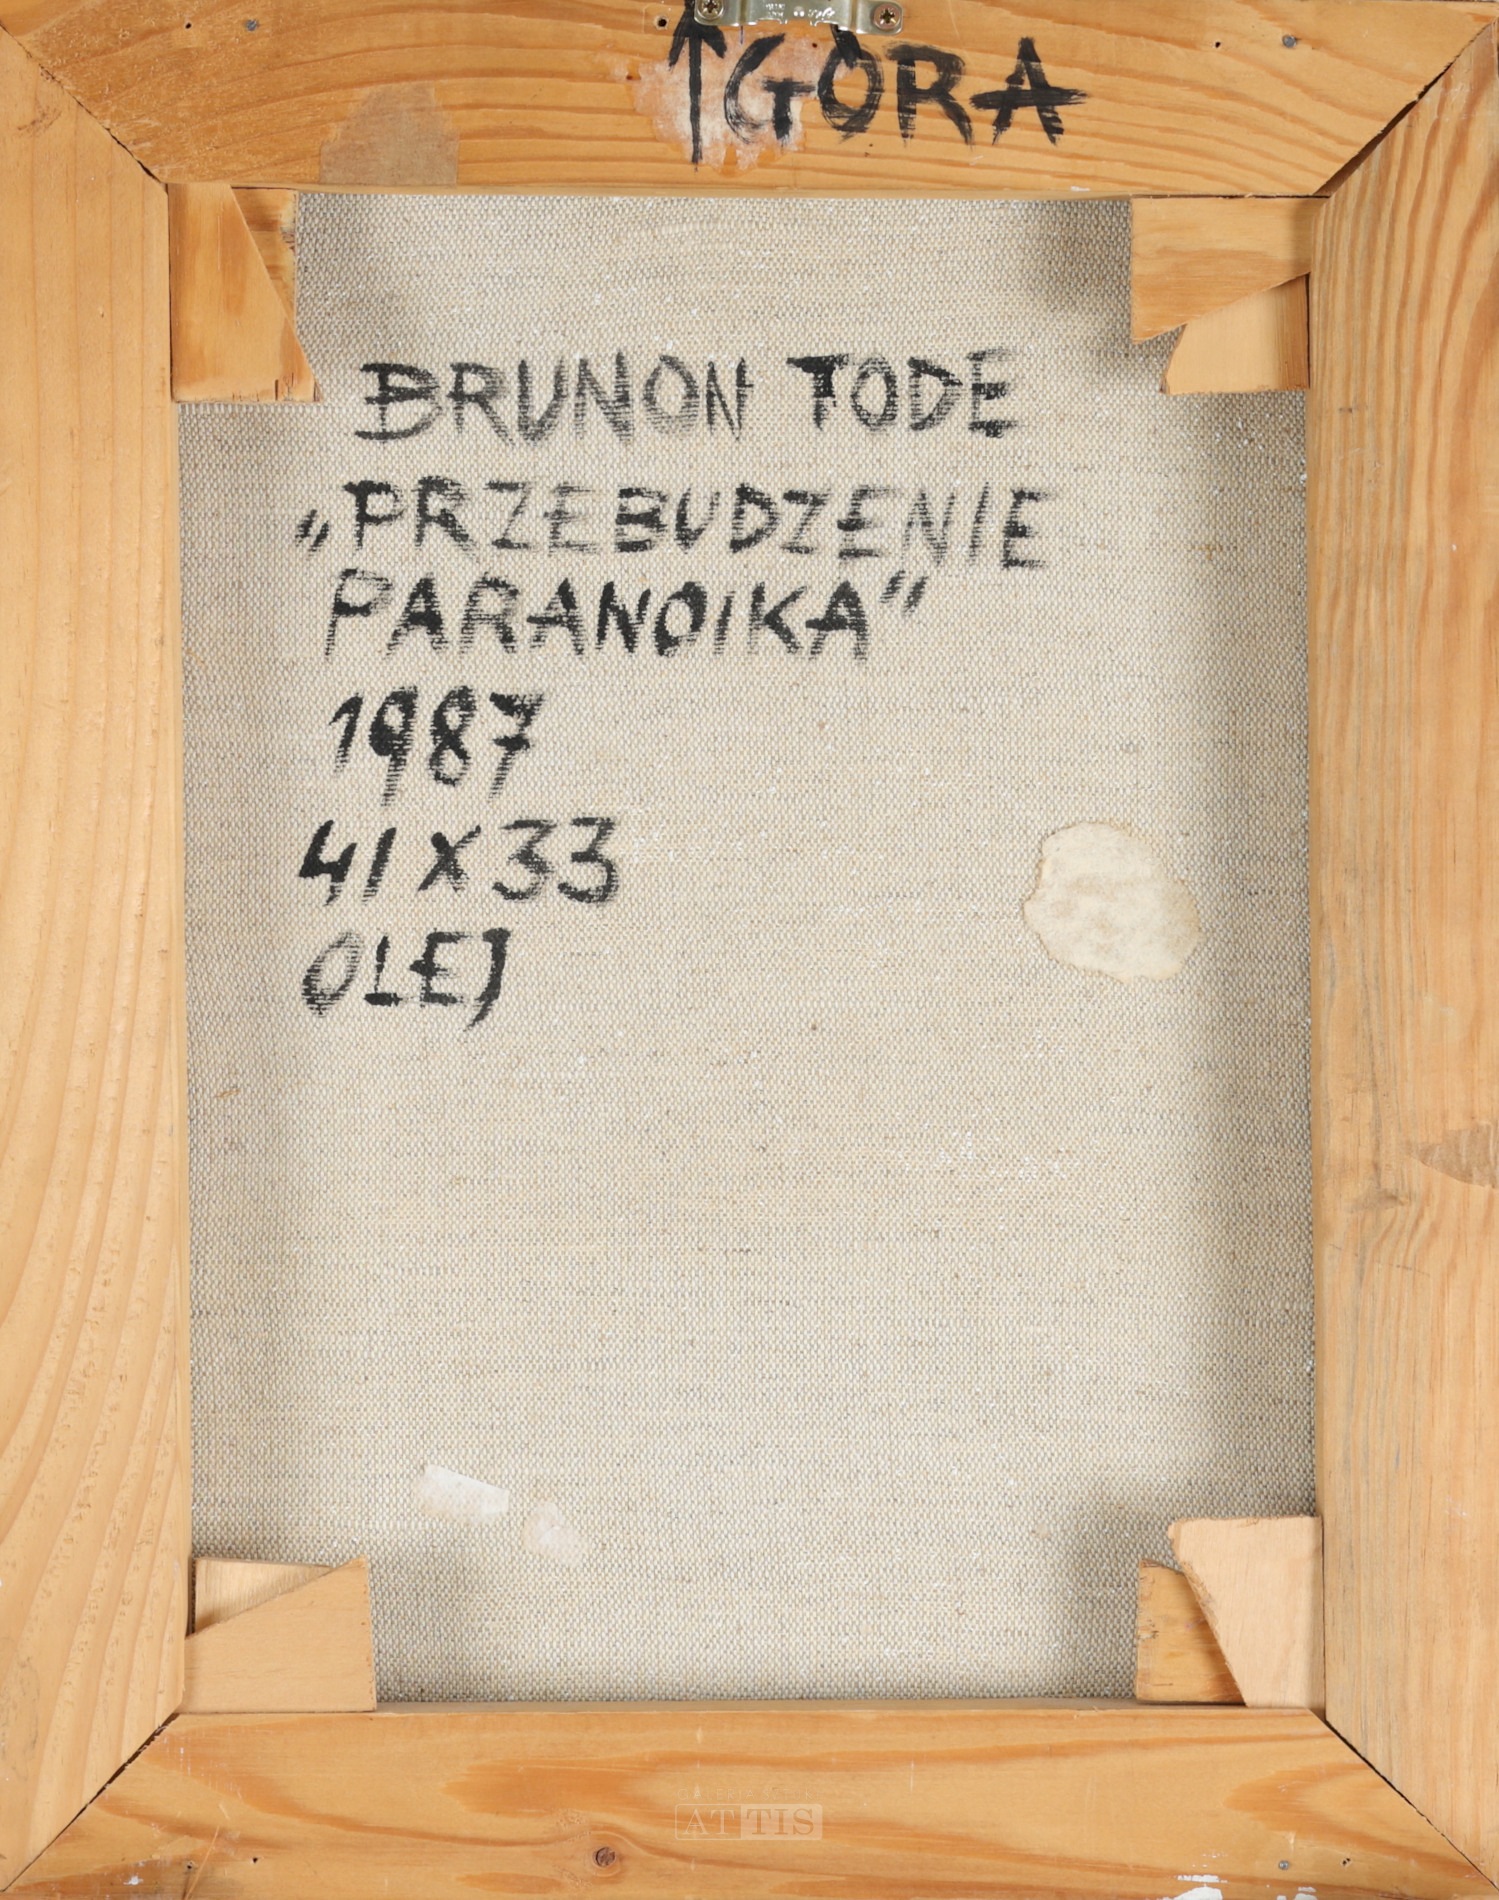 ↑GÓRA
BRUNON TODE
„PRZEBUDZENIE
PARANOIKA”
1987
41 X 33
OLEJ
ATTIS